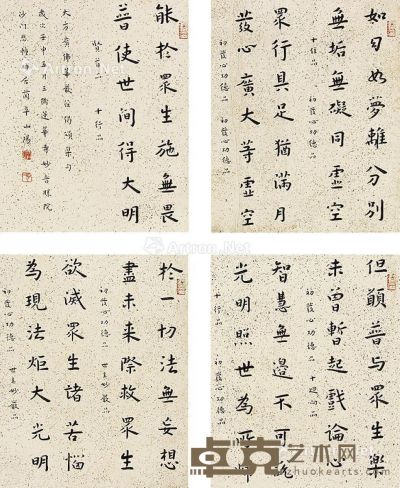 如幻如夢離分別
十住品 初發心功德品
無垢無礙同虛空
眾行具足猶滿月
初發心功德品 初發心功德品
發心廣大等虛空
能於眾生施無畏
十行品
普使世間得大明
大方廣佛華嚴經偈頌集句
但願普與眾生樂
初發心功德品
未曾暫起戲論心
智慧無邊不可
十行品 初發心功德品
光明照世為所歸
於一切法無妄想
初發心功德品 世主妙嚴品
盡未來際救眾生
欲滅眾生諸苦惱
初發心功德品 世主妙嚴品
為現法炬大光明
Artron.Net
卓克艺术网